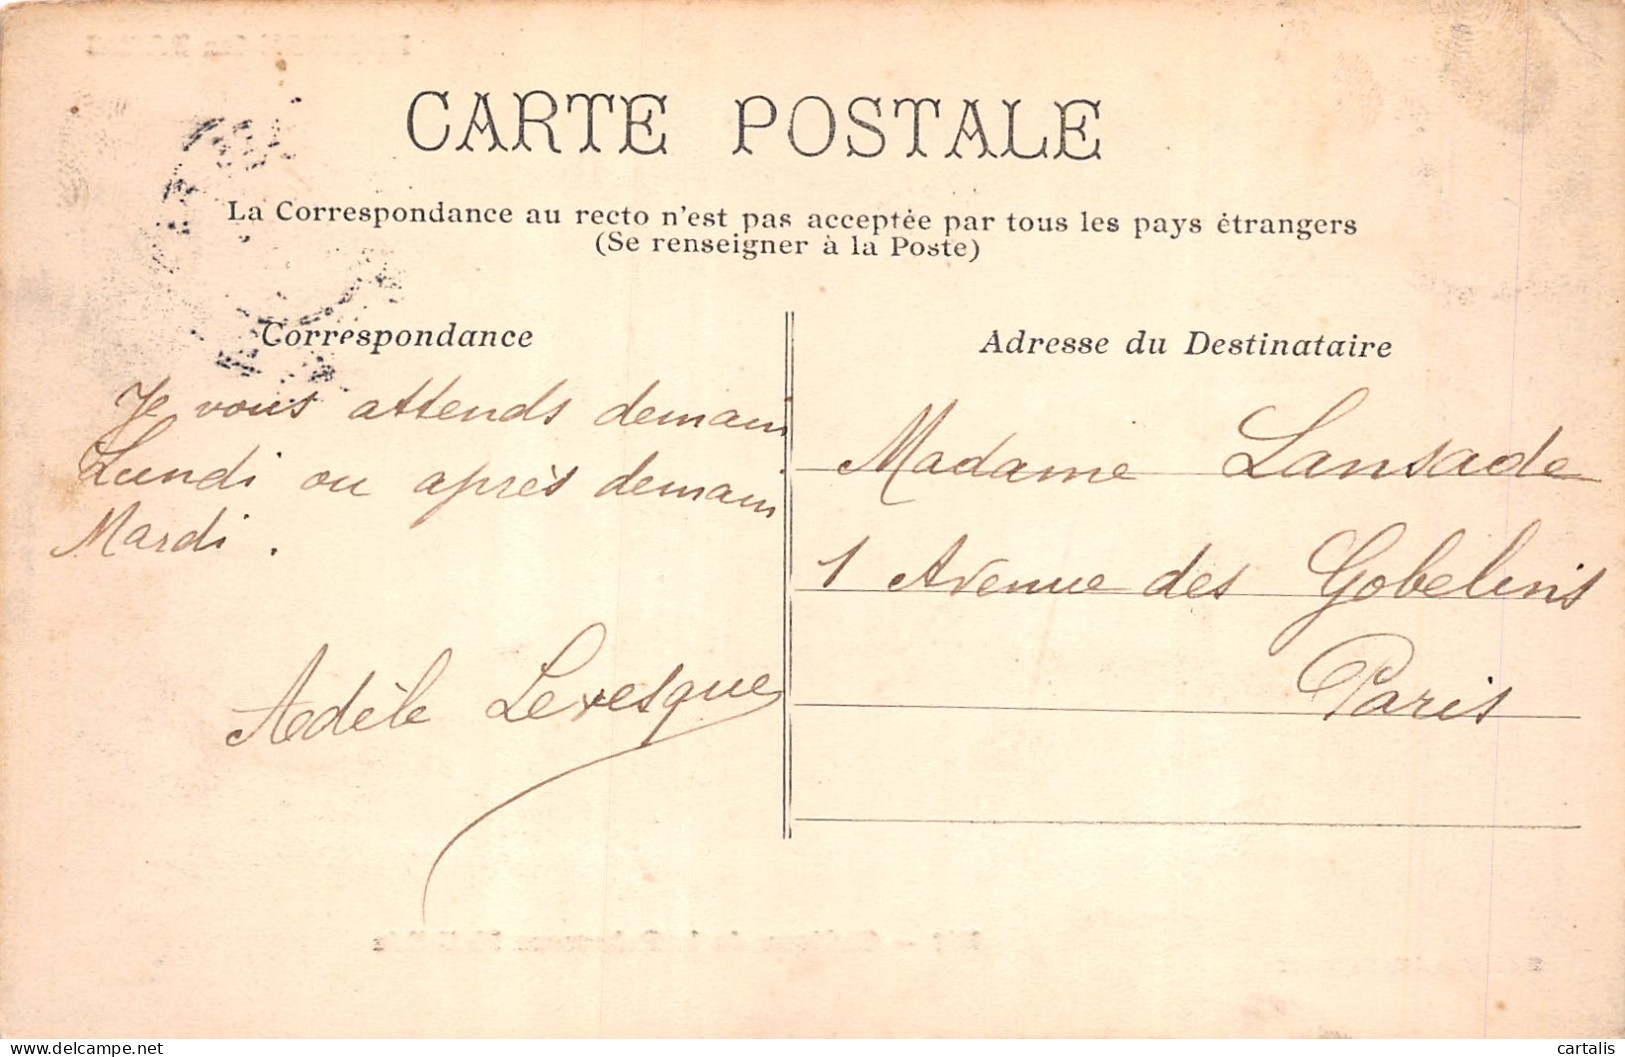 CARTE POSTALE
La Correspondance au recto n'est pas acceptée par tous les pays étrangers
(Se renseigner à la Poste)
Correspondance
Je vous attends demain
Lundi ou après demain
Mardi.
Adèle Levesque
Adresse du Destinataire
Madame Lansade
1 Avenue des Gobelins
Paris
www.delcampe.net
cartalis